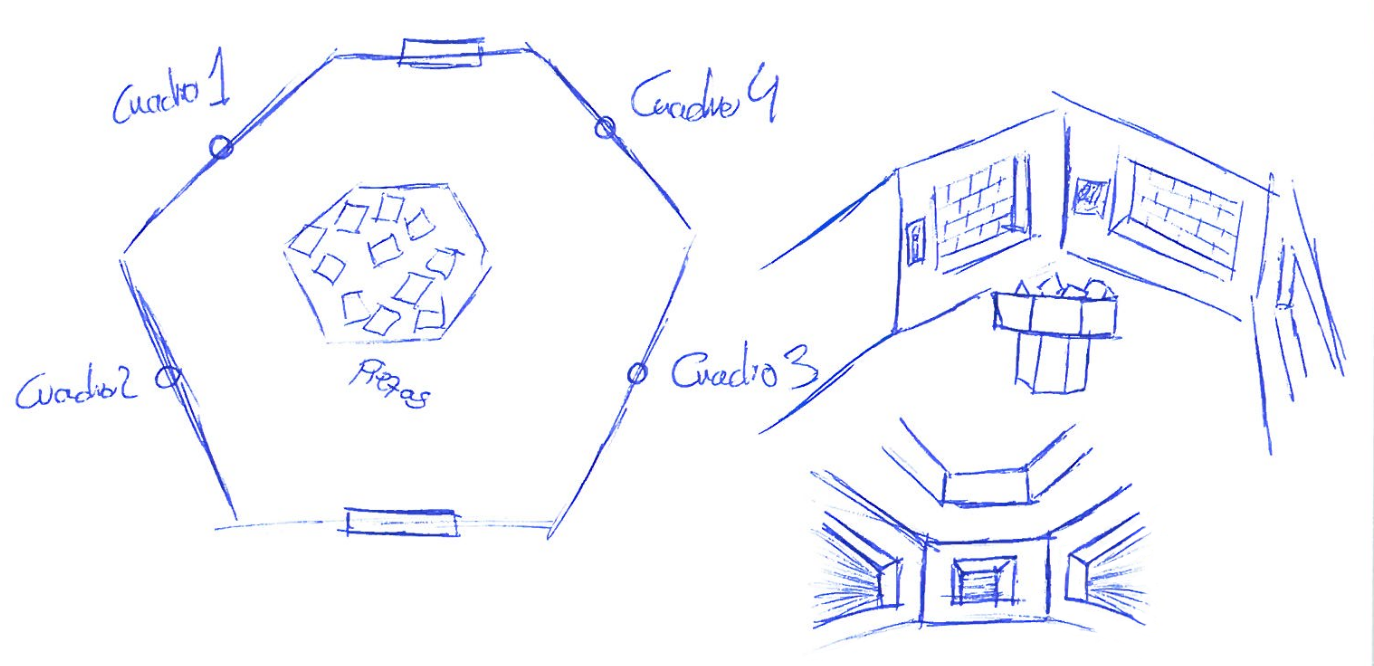 Cuadro 1
Cuadro 4
Cuadro 2
Piezas
Cuadro 3